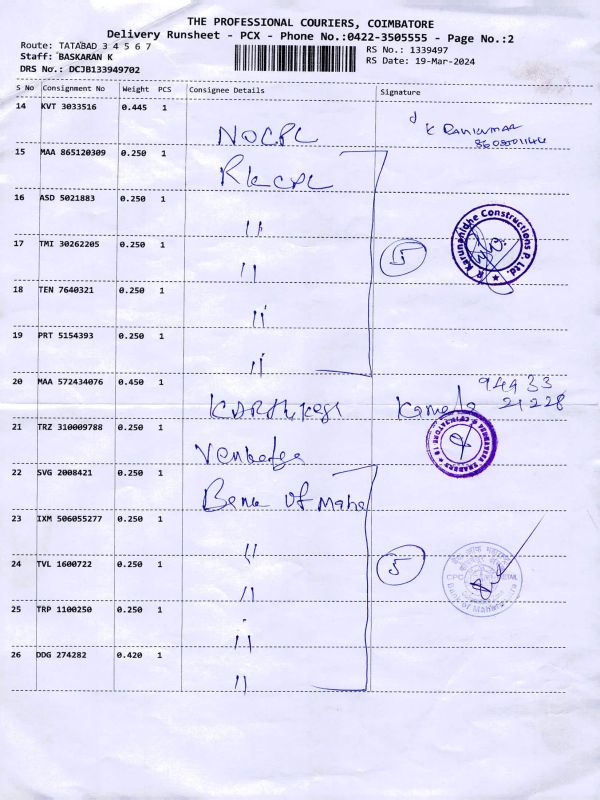 THE PROFESSIONAL COURIERS, COIMBATORE
Delivery Runsheet - PCX - Phone No.:0422-3505555 - Page No.:2
Route: TATABAD 3 4 5 6 7
RS No.: 1339497
Staff: BASKARAN K
RS Date: 19-Mar-2024
DRS No.: DCJB133949702
S No Consignment No Weight PCS Consignee Details Signature
14 KVT 3033516 0.445 1 NOCPL K
15 MAA 865120309 0.250 1 RKCPL
16 ASD 5021883 0.250 1 "
17 TMI 30262205 0.250 1 " 5
R Karunanidhe Constructions P. Ltd.
18 TEN 7640321 0.250 1 "
19 PRT 5154393 0.250 1 "
20 MAA 572434076 0.450 1 94433
21228
21 TRZ 310009788 0.250 1
22 SVG 2008421 0.250 1 Bank of Maha
23 IXM 506055277 0.250 1 "
24 TVL 1600722 0.250 1 " 5
CPC
Bank of Maharashtra
25 TRP 1100250 0.250 1 "
26 DDG 274282 0.420 1 "